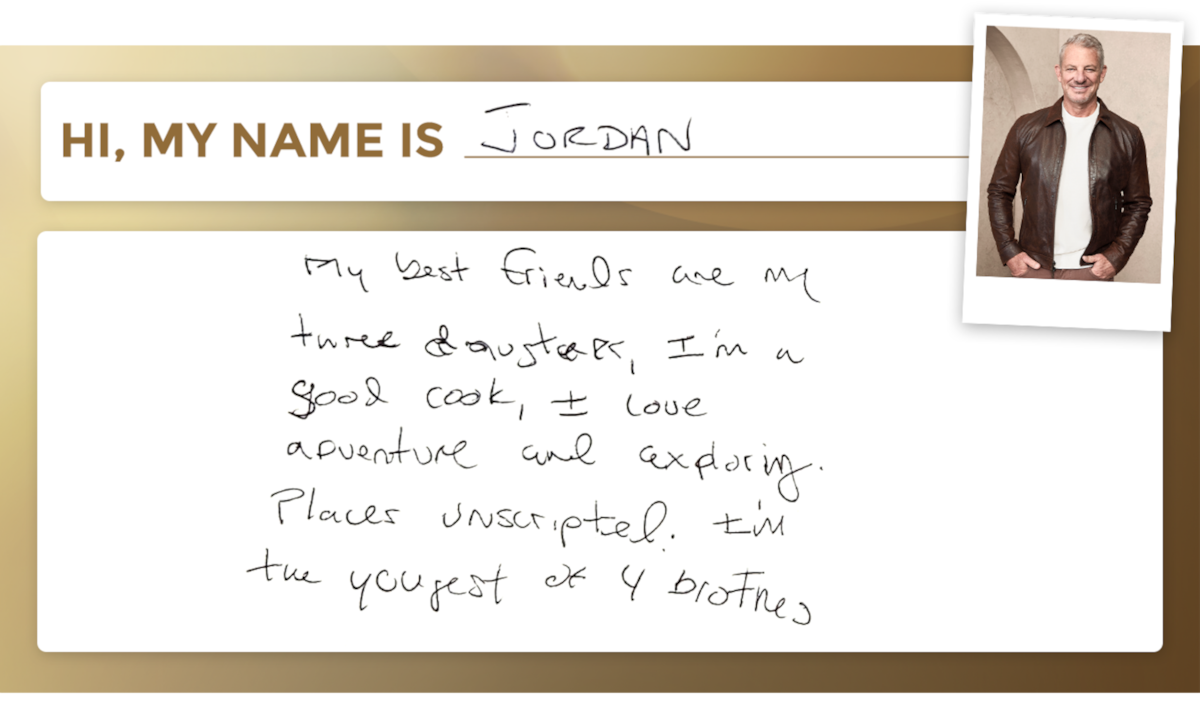 HI, MY NAME IS JORDAN
My best friends are my
three daugters, I'm a
good cook, I love
adventure and exploring.
Places unscripted. I'm
the yougest of 4 brothes